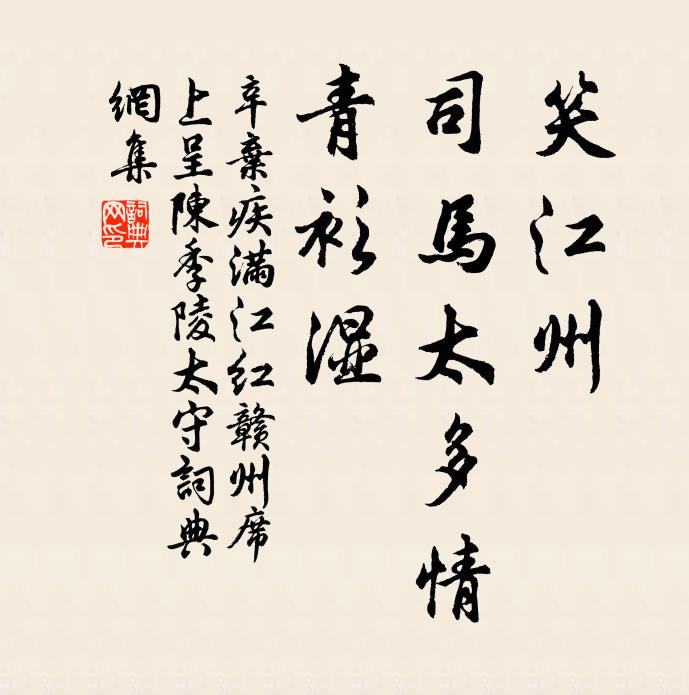 笑江州
司馬太多情
青衫湿
辛棄疾满江红赣州席
上呈陳季陵太守詞典
網集
詞典
网印